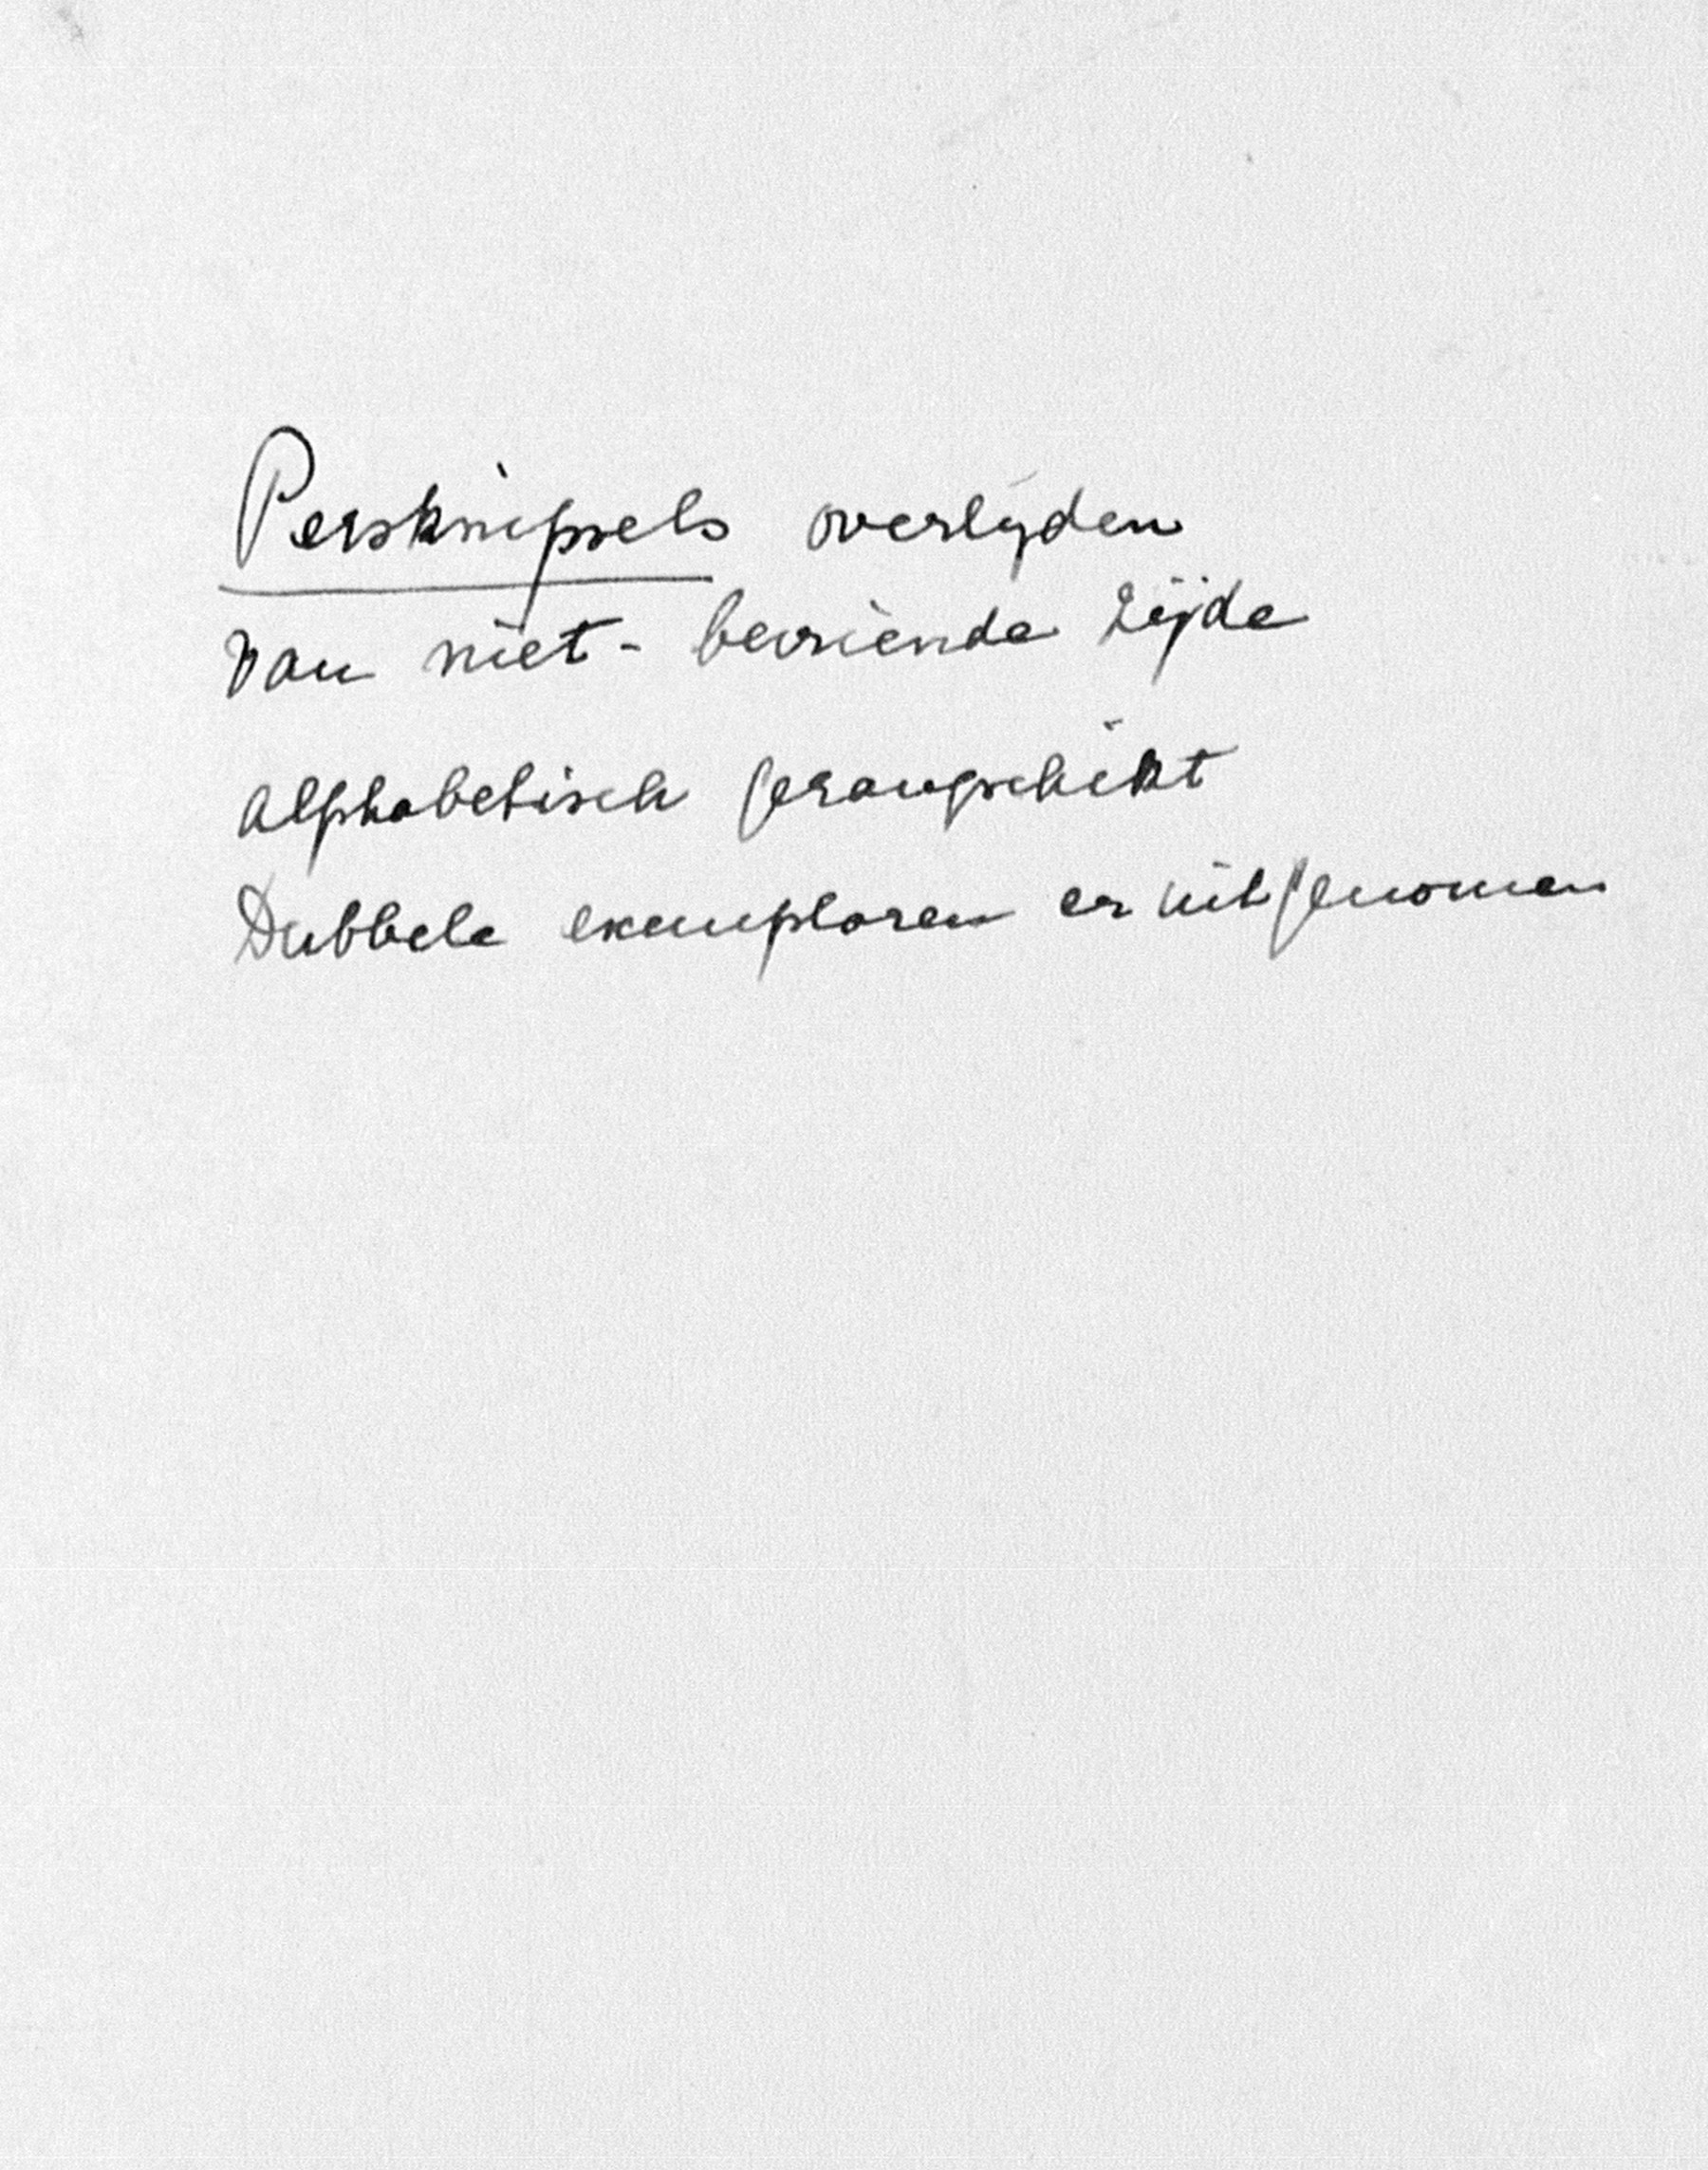 Persknipsels overlijden
van niet-bevriende zijde
alphabetisch gerangschikt
Dubbele exemplaren er uitgenomen